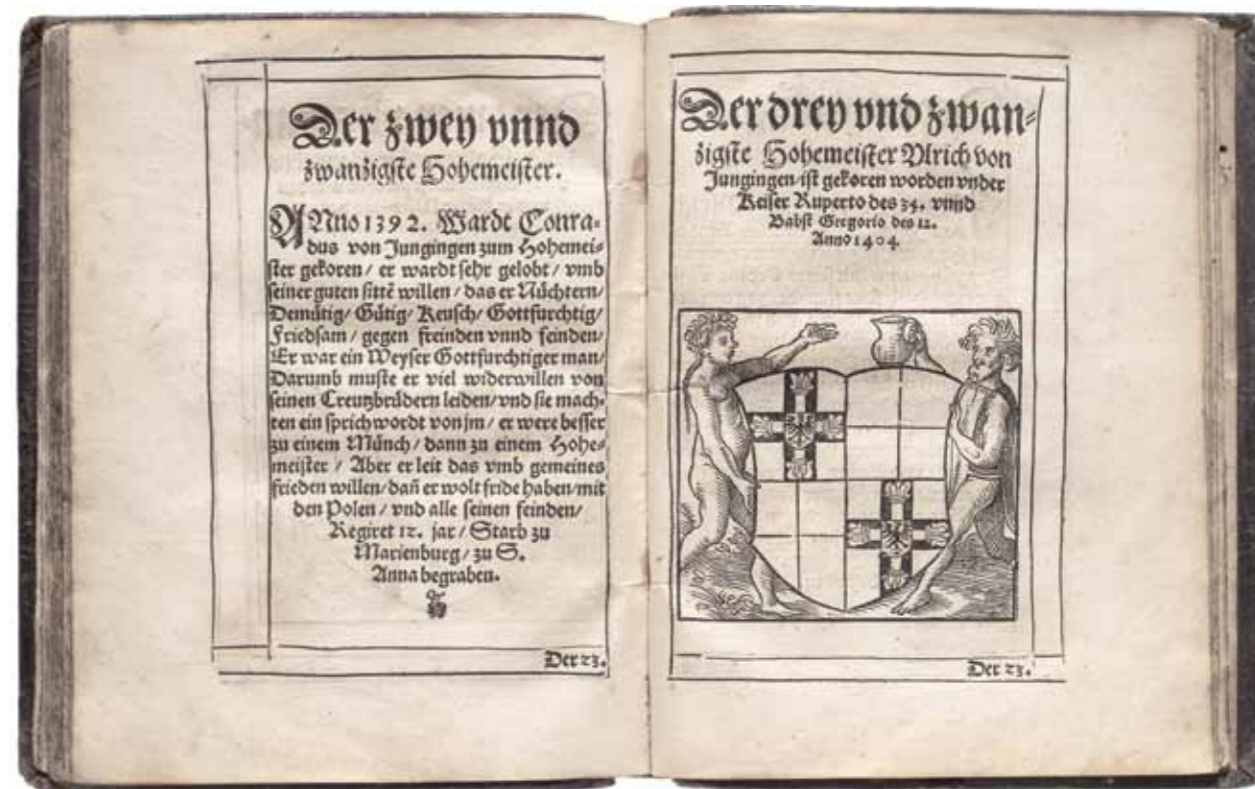 Der zwey vnnd
zwanzigste Hohemeister.
ANno 1392. Wardt Conra-
dus von Jungingen zum Hohemei-
ster gekoren / er wardt sehr gelobt / vmb
seiner guten sittẽ willen / das er Nüchtern /
Demütig / Gütig / Keusch / Gottfurchtig /
Friedsam / gegen freinden vnnd feinden /
Er war ein Weyser Gottfurchtiger man /
Darumb muste er viel widerwillen von
seinen Creutzbrüdern leiden / vnd sie mach-
ten ein sprichwordt von jm / er were besser
zu einem Münch / dann zu einem Hohe-
meister / Aber er leit das vmb gemeines
frieden willen / dañ er wolt fride haben / mit
den Polen / vnd alle seinen feinden /
Regiret 12. jar / Starb zu
Marienburg / zu S.
Anna begraben.
Der 23.
Der drey vnd zwan-
zigste Hohemeister Vlrich von
Jungingen / ist gekoren worden vnder
Keiser Ruperto des 34. vnnd
Babst Gregorio des 12.
Anno 1404.
Der 23.